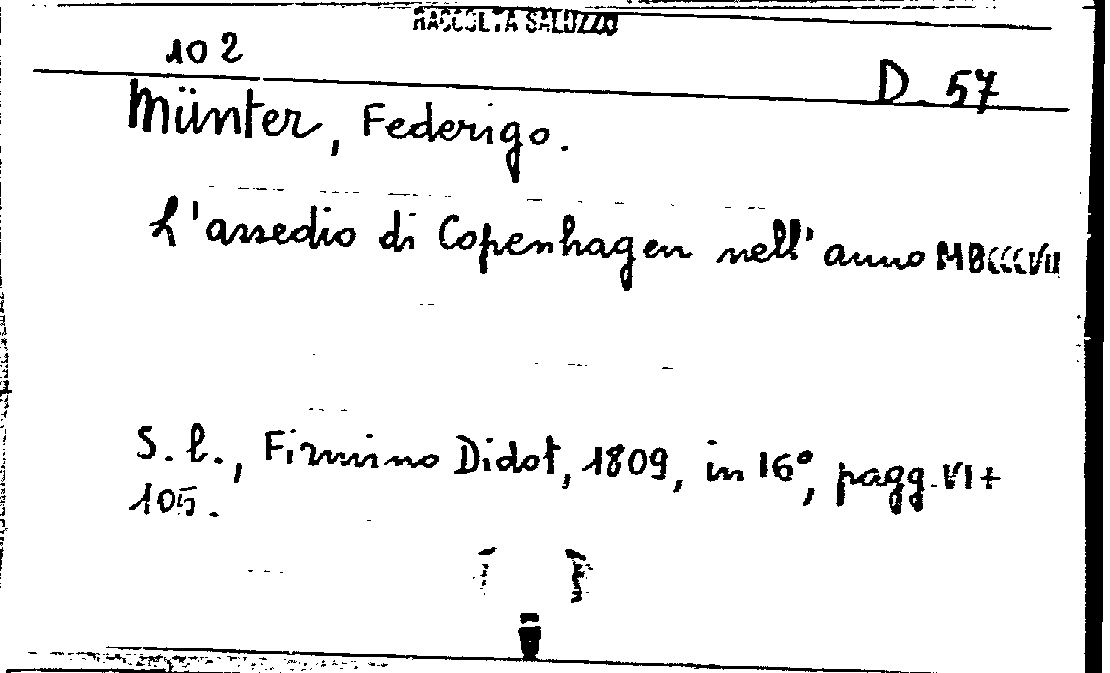 RACCOLTA SALUZZO
102
D. 57
Münter, Federigo.
L'assedio di Copenhagen nell'anno MDCCCVII
S.l., Firmino Didot, 1809, in 16°, pagg. VI +
105.